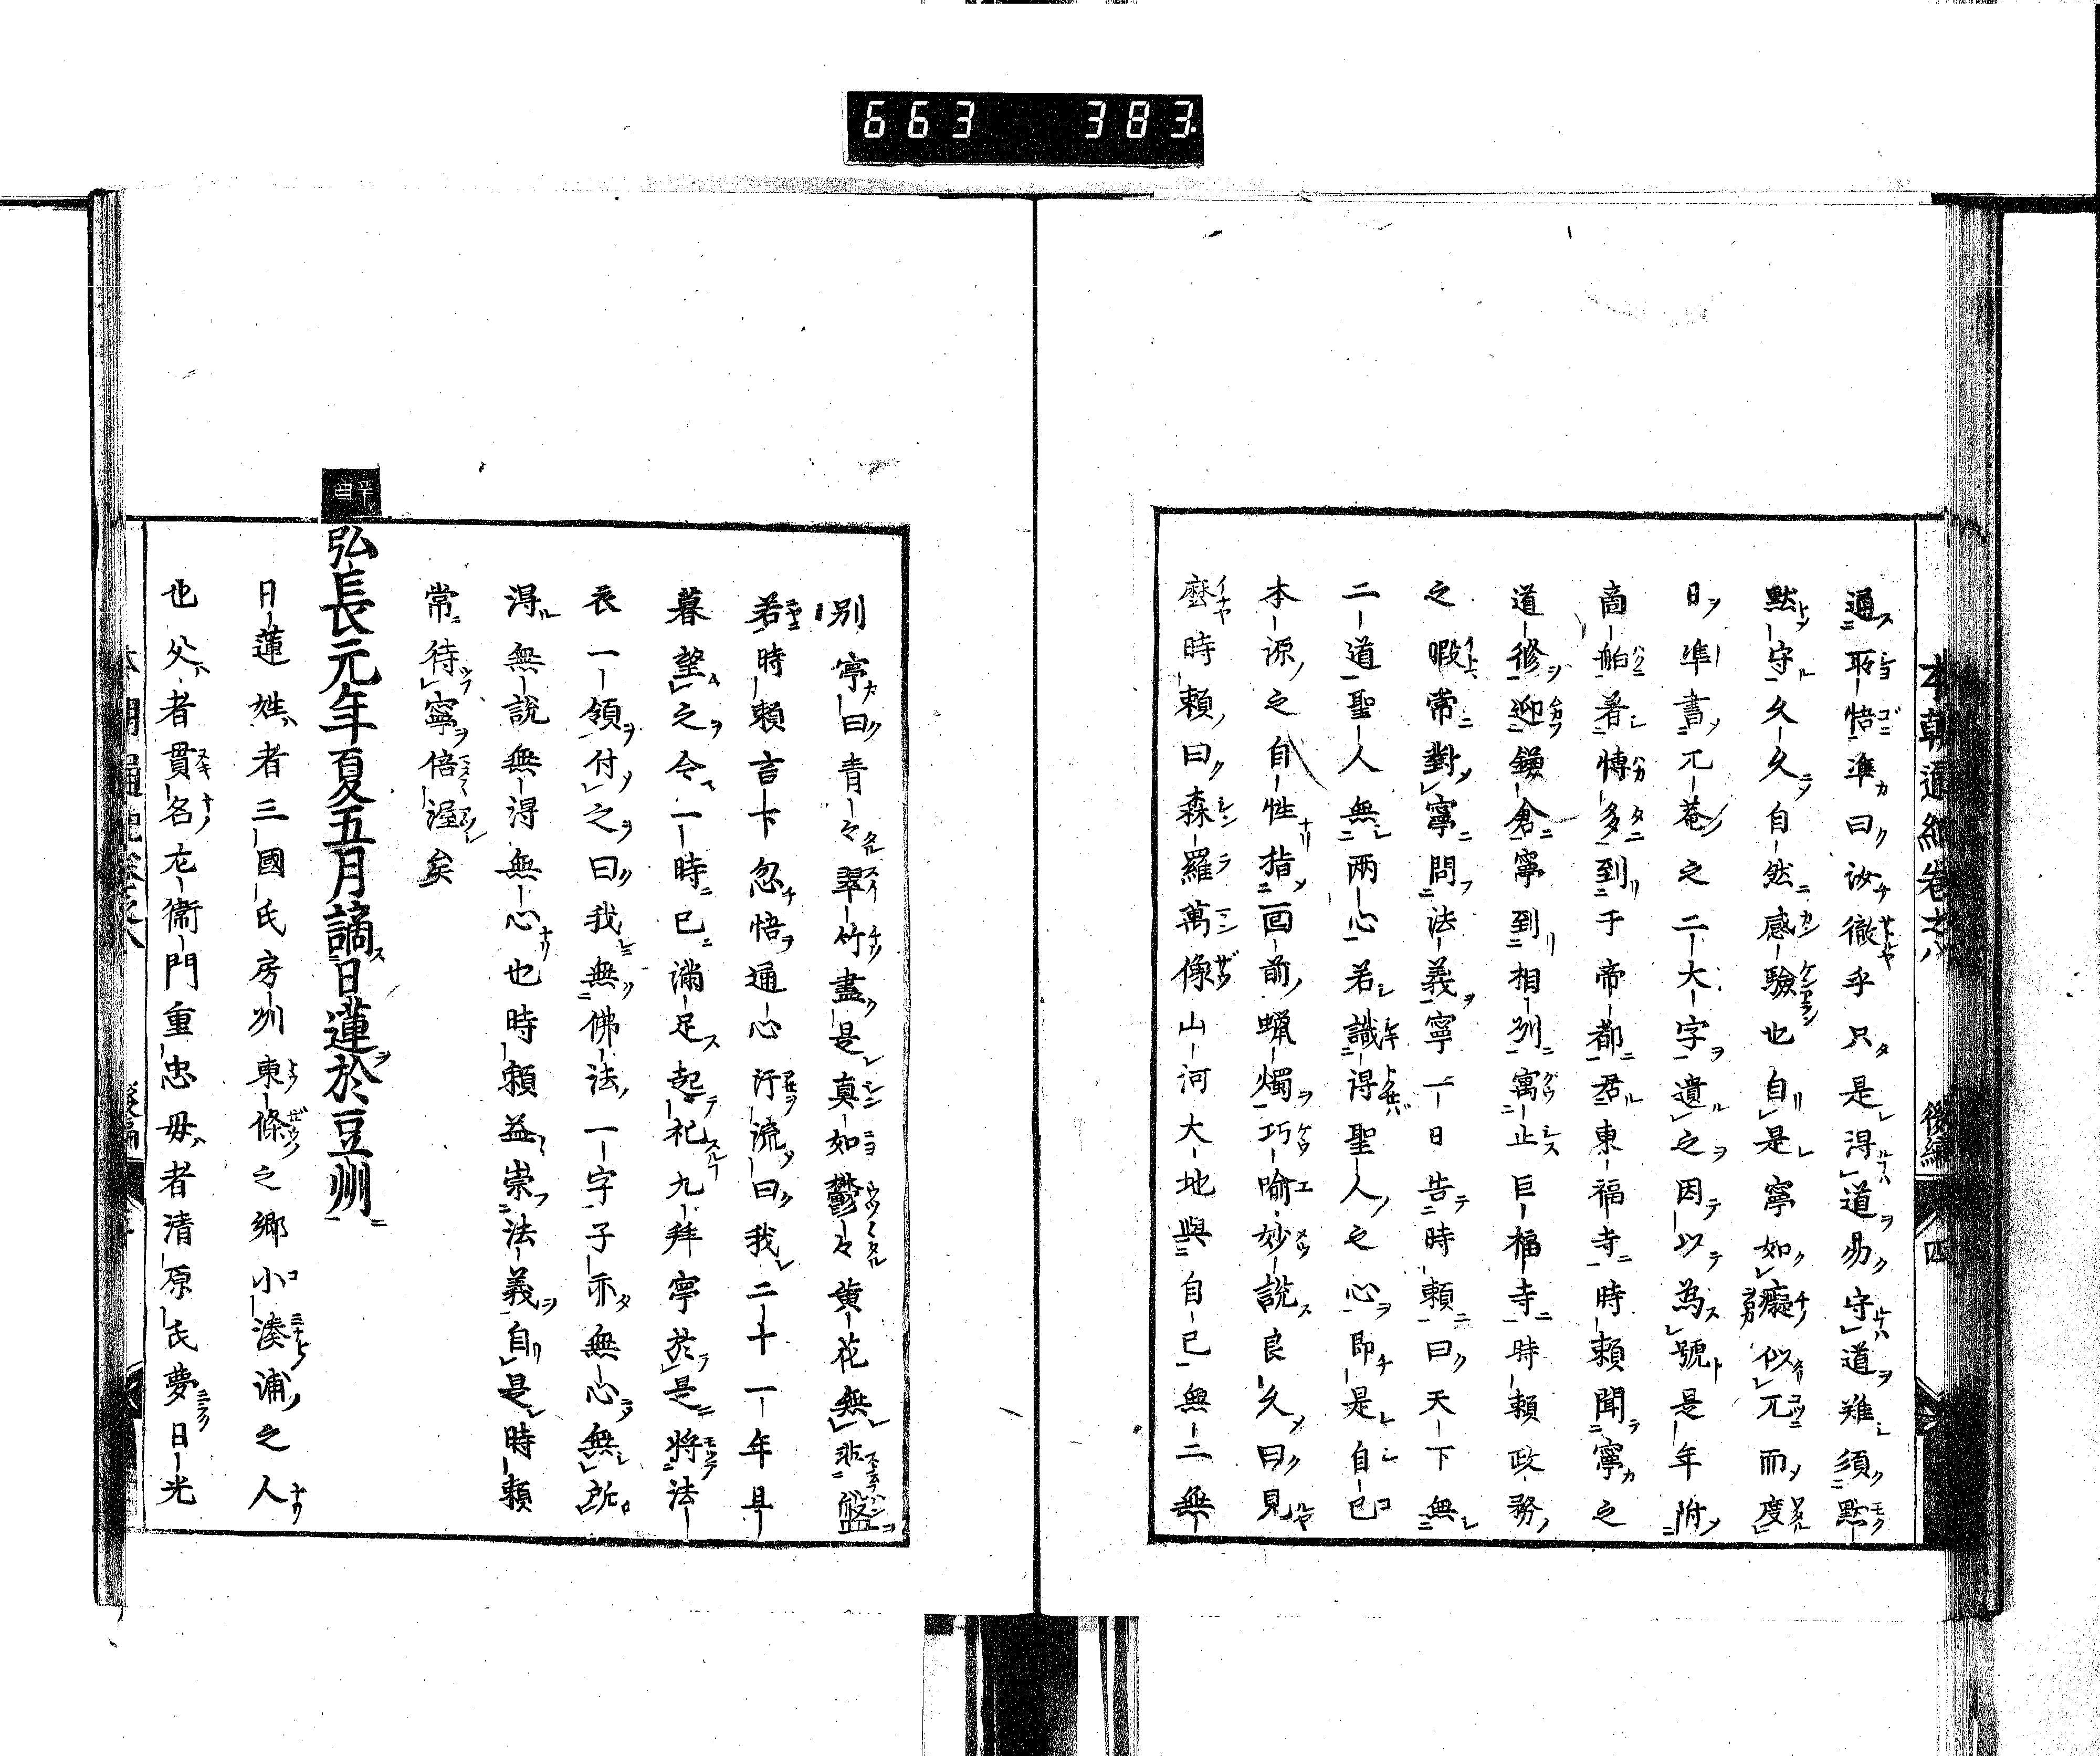 663 383
本朝通紀卷之八 後編 四
通所悟準曰汝徹乎只是得道易守道難須默
默守久久自然感驗也自是寧如癡似兀而度
日準書兀菴之二大字遺之因以為號是年附
商舶著博多到于帝都居東福寺時賴聞寧之
道修迎鎌倉寧到相州寓止巨福寺時賴政務
之暇常對寧問法義寧一日告時賴曰天下無
二道聖人無兩心若識得聖人之心即是自己
本源之自性指面前蠟燭巧喻妙說良久曰見
麼時賴曰森羅萬像山河大地與自己無二無
別寧曰青々翠竹盡是真如鬱々黃花無非盤
若時賴言下忽悟通心汗流曰我二十一年旦
暮望之今一時已滿足起禮九拜寧於是將法
衣一領付之曰我無佛法一字子亦無心無所
得無說無得無心也時賴益崇法義自是時賴
常待寧倍渥矣
辛酉
弘長元年夏五月謫日蓮於豆州
日蓮姓者三國氏房州東條之鄉小湊浦之人
也父者貫名左衞門重忠母者清原氏夢日光